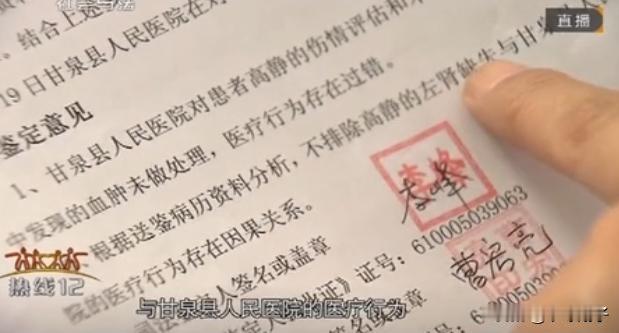 社会与法
直播
结合上述
19日甘泉县人民医院在对
鉴定意见
1、甘泉县人民医院对患者高静的伤情评估和
中发现的血肿未做处理，医疗行为存在过错。
根据送鉴病历资料分析，不排除高静的左肾缺失与甘泉县人
院的医疗行为存在因果关系。
司法鉴定人签名或盖章
证》证号：610005039063
签名或盖章
证号：
热线12
与甘泉县人民医院的医疗行为